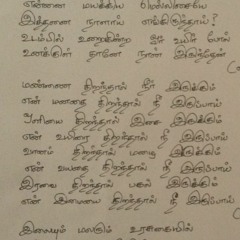 என்னை மயக்கிய மெல்லிசையே
இத்தனை நாளாய் எங்கிருந்தாய்?
உடம்பில் உறைகின்ற ஓர் உயிர் போல்
உனக்குள் நானே நான் இருந்தேன்
மண்ணை திறந்தால் நீர் இருக்கும்
என் மனதை திறந்தால் நீ இருப்பாய்
ஒலியை திறந்தால் இசை இருக்கும்
என் உயிரை திறந்தால் நீ இருப்பாய்
வானம் திறந்தால் மழை இருக்கும்
என் வயதை திறந்தால் நீ இருப்பாய்
இரவை திறந்தால் பகல் இருக்கும்
என் இமையை திறந்தால் நீ இருப்பாய்
இலையும் மலரும் உரசுகையில்